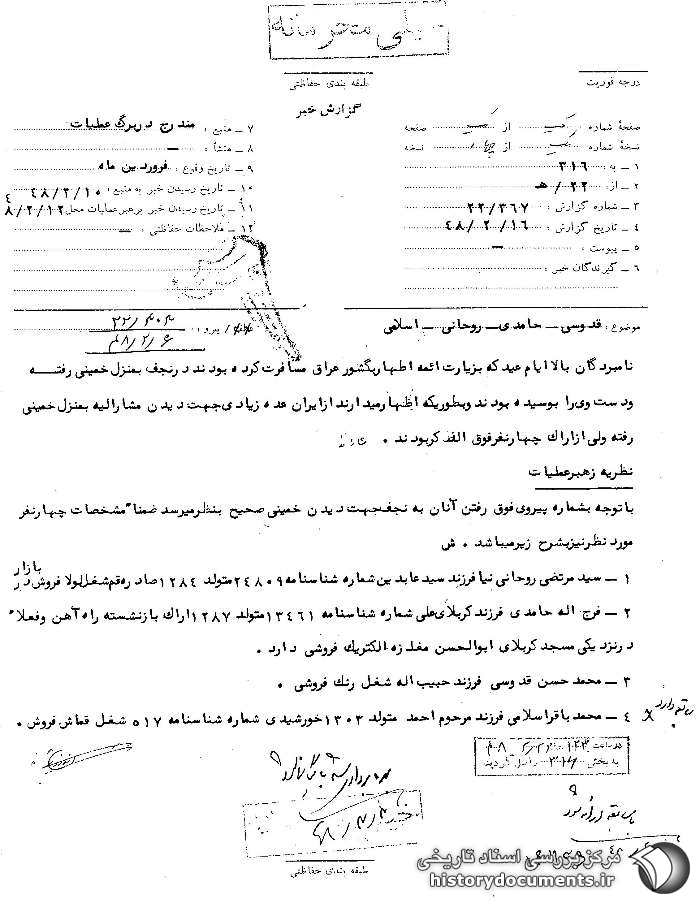 خیلی محرمانه
درجه فوریت
طبقه بندی حفاظتی
گزارش خبر
صفحهٔ شماره یک از یک صفحه
نسخهٔ شماره یک از چهار نسخه
۱ ــ به : ۳۱۶
۲ ــ از : ۲۲/ هـ
۳ ــ شماره گزارش : ۲۲/۳۶۷
۴ ــ تاریخ گزارش : ۴۸/۲/۱۶
۵ ــ پیوست : ــ
۶ ــ گیرندگان خبر :
۷ ــ منبع : مندرج در برگ عملیات
۸ ــ منشأ : ــ
۹ ــ تاریخ وقوع : فروردین ماه
۱۰ ــ تاریخ رسیدن خبر به منبع : ۴۸/۲/۱۰
۱۱ ــ تاریخ رسیدن خبر بر هبر عملیات محل ۴۸/۲/۱۲
۱۲ ــ ملاحظات حفاظتی : ــ
موضوع : قدوسی ــ حامدی ــ روحانی ــ اسلامی
پیرو : ۲۲/۴۰۴
۴۸/۲/۶
نامبردگان بالا ایام عید که بزیارت ائمه اطهار بگشور عراق مسافرت کرده بودند در نجف بمنزل خمینی رفتــه
و دست وی را بوسیده بودند و بطوریکه اظهار میدارند از ایران عده زیادی جهت دیدن مشارالیه بمنزل خمینی
رفته ولی از اراک چهار نفر فوق الذکر بودند .
نظریه رهبر عملیات
با توجه بشماره پیروی فوق رفتن آنان به نجف جهت دیدن خمینی صحیح بنظر میرسد ضمنا" مشخصات چهار نفر
مورد نظر نیز بشرح زیر میباشد . ش
۱ ــ سید مرتضی روحانی نیا فرزند سید عابدین شماره شناسنامه ۲۴۸۰۹ متولد ۱۲۸۴ صادره قم شغل لولا فروش در بازار
۲ ــ فرج اله حامدی فرزند کربلای علی شماره شناسنامه ۱۳۴۶۱ متولد ۱۲۸۷ اراک بازنشسته راه آهن و فعلا"
در نزدیکی مسجد کربلای ابوالحسن مغازه الکتریک فروشی دارد .
۳ ــ محمد حسن قدوسی فرزند حبیب اله شغل رنگ فروشی .
۴ ــ محمد باقر اسلامی فرزند مرحوم احمد متولد ۱۳۰۳ خورشیدی شماره شناسنامه ۵۱۷ شغل قماش فروش .
سابقه دارد
در ساعت
به بخش ۳۱۶ واصل گردید
با سابقه ارائه شود
۴۸/۲/۴
طبقه بندی حفاظتی
مرکز بررسی اسناد تاریخی
historydocuments.ir